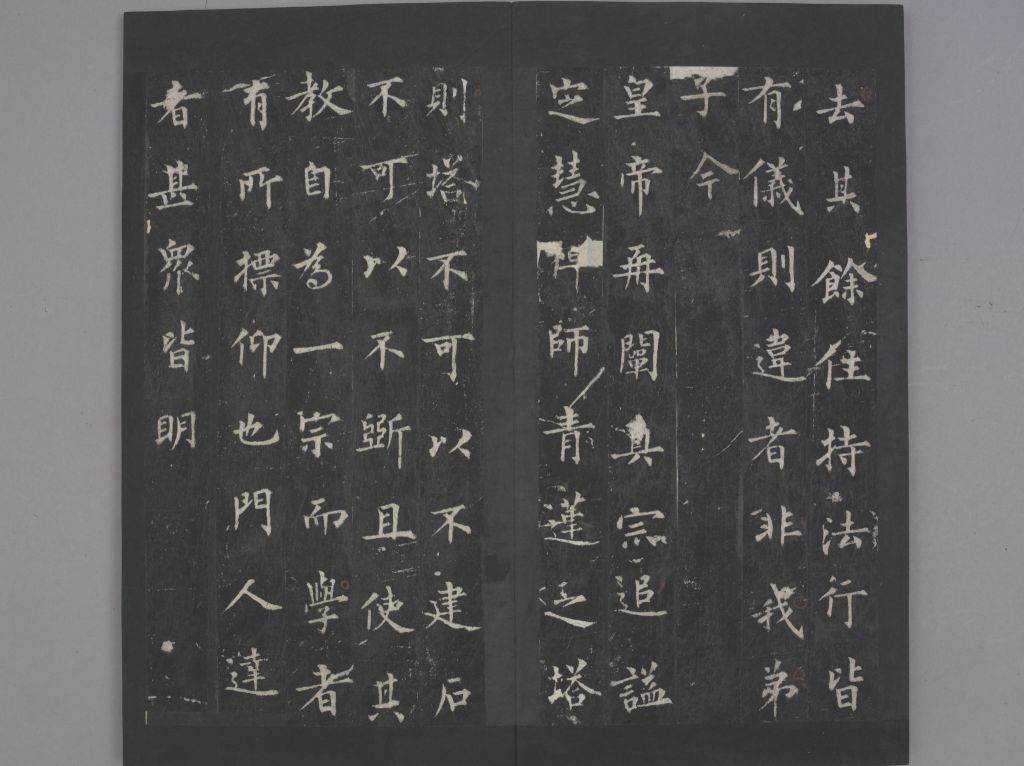 去其餘住持法行皆
有儀則違者非我弟
子 今
皇帝再闡真宗追謚
定慧禪師青蓮之塔
則塔不可以不建石
不可以不斲且使其
教自為一宗而學者
有所標仰也門人達
者甚眾皆明